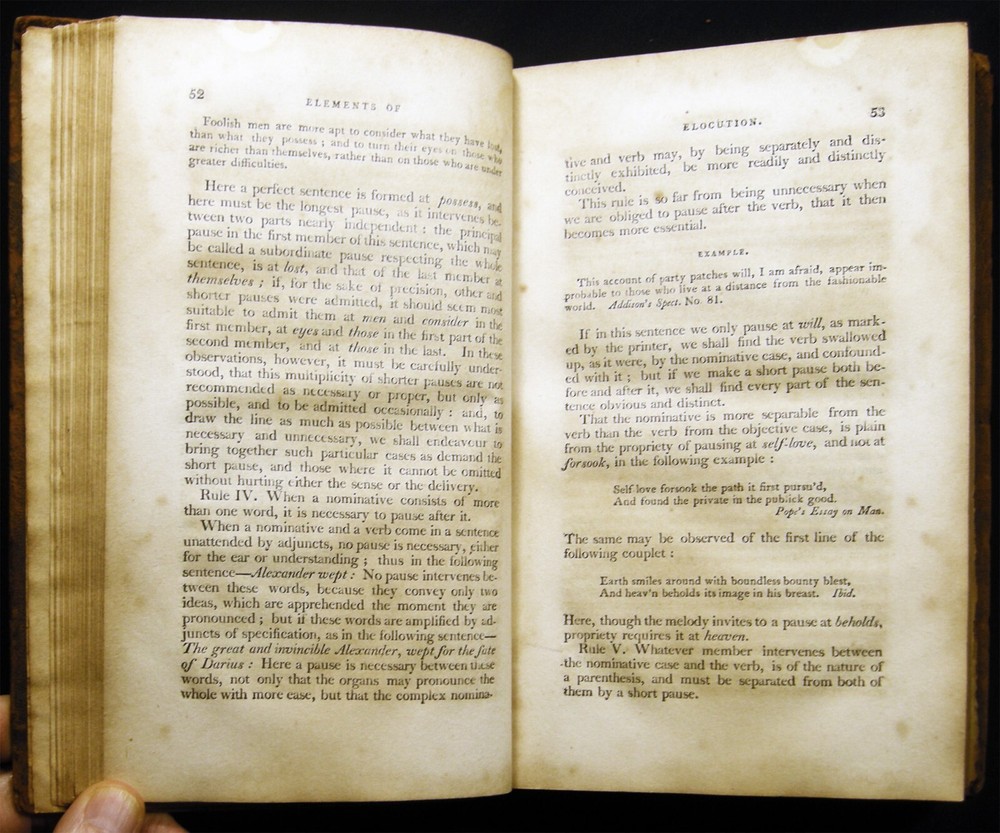 52
ELEMENTS OF
Foolish men are more apt to consider what they have lost,
than what they possess ; and to turn their eyes on those who
are richer than themselves, rather than on those who are under
greater difficulties.
Here a perfect sentence is formed at possess, and
here must be the longest pause, as it intervenes be-
tween two parts nearly independent : the principal
pause in the first member of this sentence, which may
be called a subordinate pause respecting the whole
sentence, is at lost, and that of the last member at
themselves ; if, for the sake of precision, other and
shorter pauses were admitted, it should seem most
suitable to admit them at men and consider in the
first member, at eyes and those in the first part of the
second member, and at those in the last. In these
observations, however, it must be carefully under-
stood, that this multiplicity of shorter pauses are not
recommended as necessary or proper, but only as
possible, and to be admitted occasionally : and, to
draw the line as much as possible between what is
necessary and unnecessary, we shall endeavour to
bring together such particular cases as demand the
short pause, and those where it cannot be omitted
without hurting either the sense or the delivery.
Rule IV. When a nominative consists of more
than one word, it is necessary to pause after it.
When a nominative and a verb come in a sentence
unattended by adjuncts, no pause is necessary, either
for the ear or understanding ; thus in the following
sentence—Alexander wept : No pause intervenes be-
tween these words, because they convey only two
ideas, which are apprehended the moment they are
pronounced ; but if these words are amplified by ad-
juncts of specification, as in the following sentence—
The great and invincible Alexander, wept for the fate
of Darius : Here a pause is necessary between these
words, not only that the organs may pronounce the
whole with more ease, but that the complex nomina-
ELOCUTION.
53
tive and verb may, by being separately and dis-
tinctly exhibited, be more readily and distinctly
conceived.
This rule is so far from being unnecessary when
we are obliged to pause after the verb, that it then
becomes more essential.
EXAMPLE.
This account of party patches will, I am afraid, appear im-
probable to those who live at a distance from the fashionable
world. Addison's Spect. No. 81.
If in this sentence we only pause at will, as mark-
ed by the printer, we shall find the verb swallowed
up, as it were, by the nominative case, and confound-
ed with it ; but if we make a short pause both be-
fore and after it, we shall find every part of the sen-
tence obvious and distinct.
That the nominative is more separable from the
verb than the verb from the objective case, is plain
from the propriety of pausing at self-love, and not at
forsook, in the following example :
Self love forsook the path it first pursu'd,
And found the private in the publick good.
Pope's Essay on Man.
The same may be observed of the first line of the
following couplet :
Earth smiles around with boundless bounty blest,
And heav'n beholds its image in his breast. Ibid.
Here, though the melody invites to a pause at beholds,
propriety requires it at heaven.
Rule V. Whatever member intervenes between
the nominative case and the verb, is of the nature of
a parenthesis, and must be separated from both of
them by a short pause.